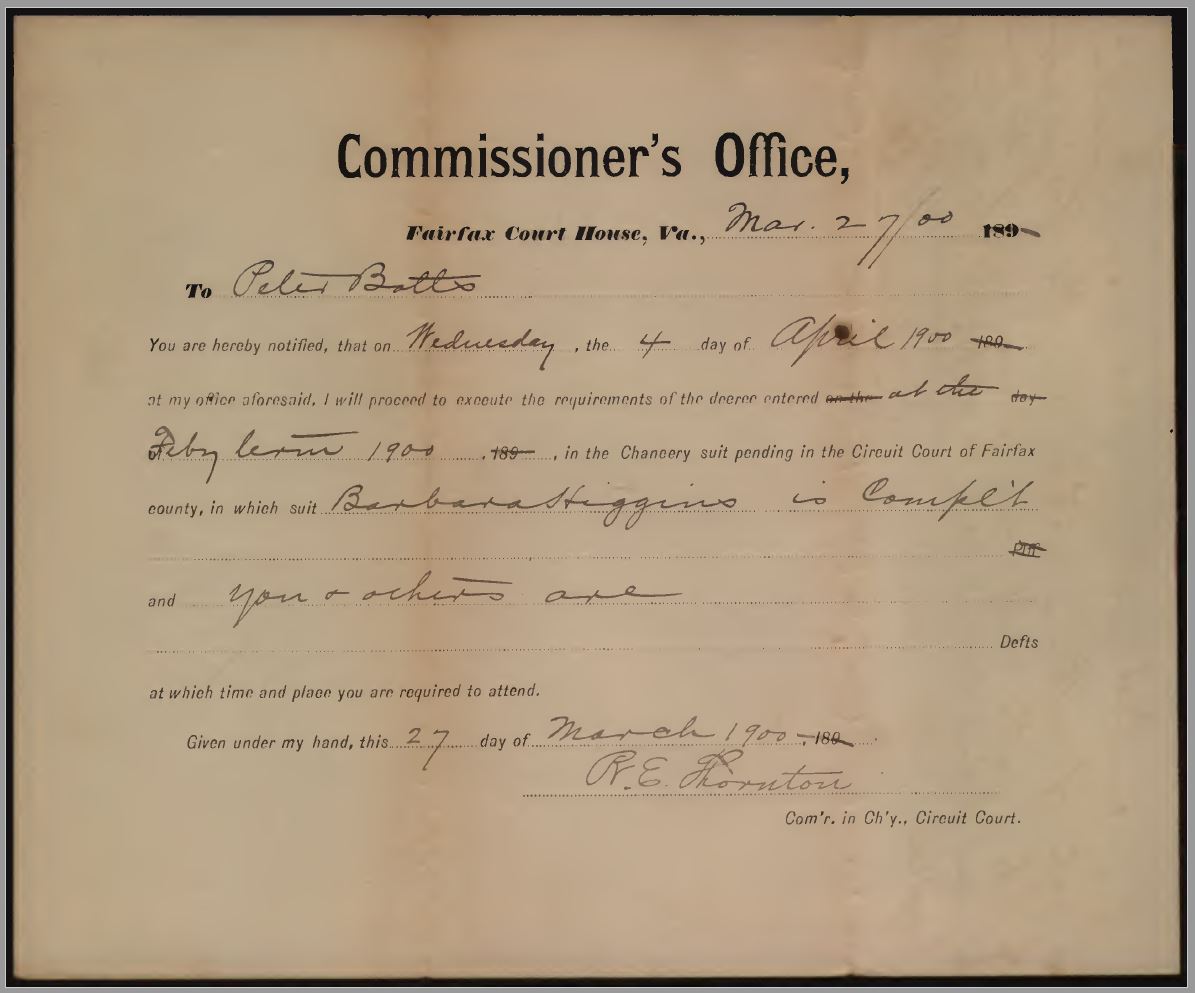 Commissioner's Office,
Fairfax Court House, Va., Mar. 27/00 189
To Peter Botts
You are hereby notified, that on Wednesday, the 4 day of April 1900 189
at my office aforesaid, I will proceed to execute the requirements of the decree entered on the at the day
of Feby term 1900, 189, in the Chancery suit pending in the Circuit Court of Fairfax
county, in which suit Barbara Higgins is Compl't
Plff
and you & others are
Defts
at which time and place you are required to attend.
Given under my hand, this 27 day of March 1900, 189
R. E. Thornton
Com'r. in Ch'y., Circuit Court.